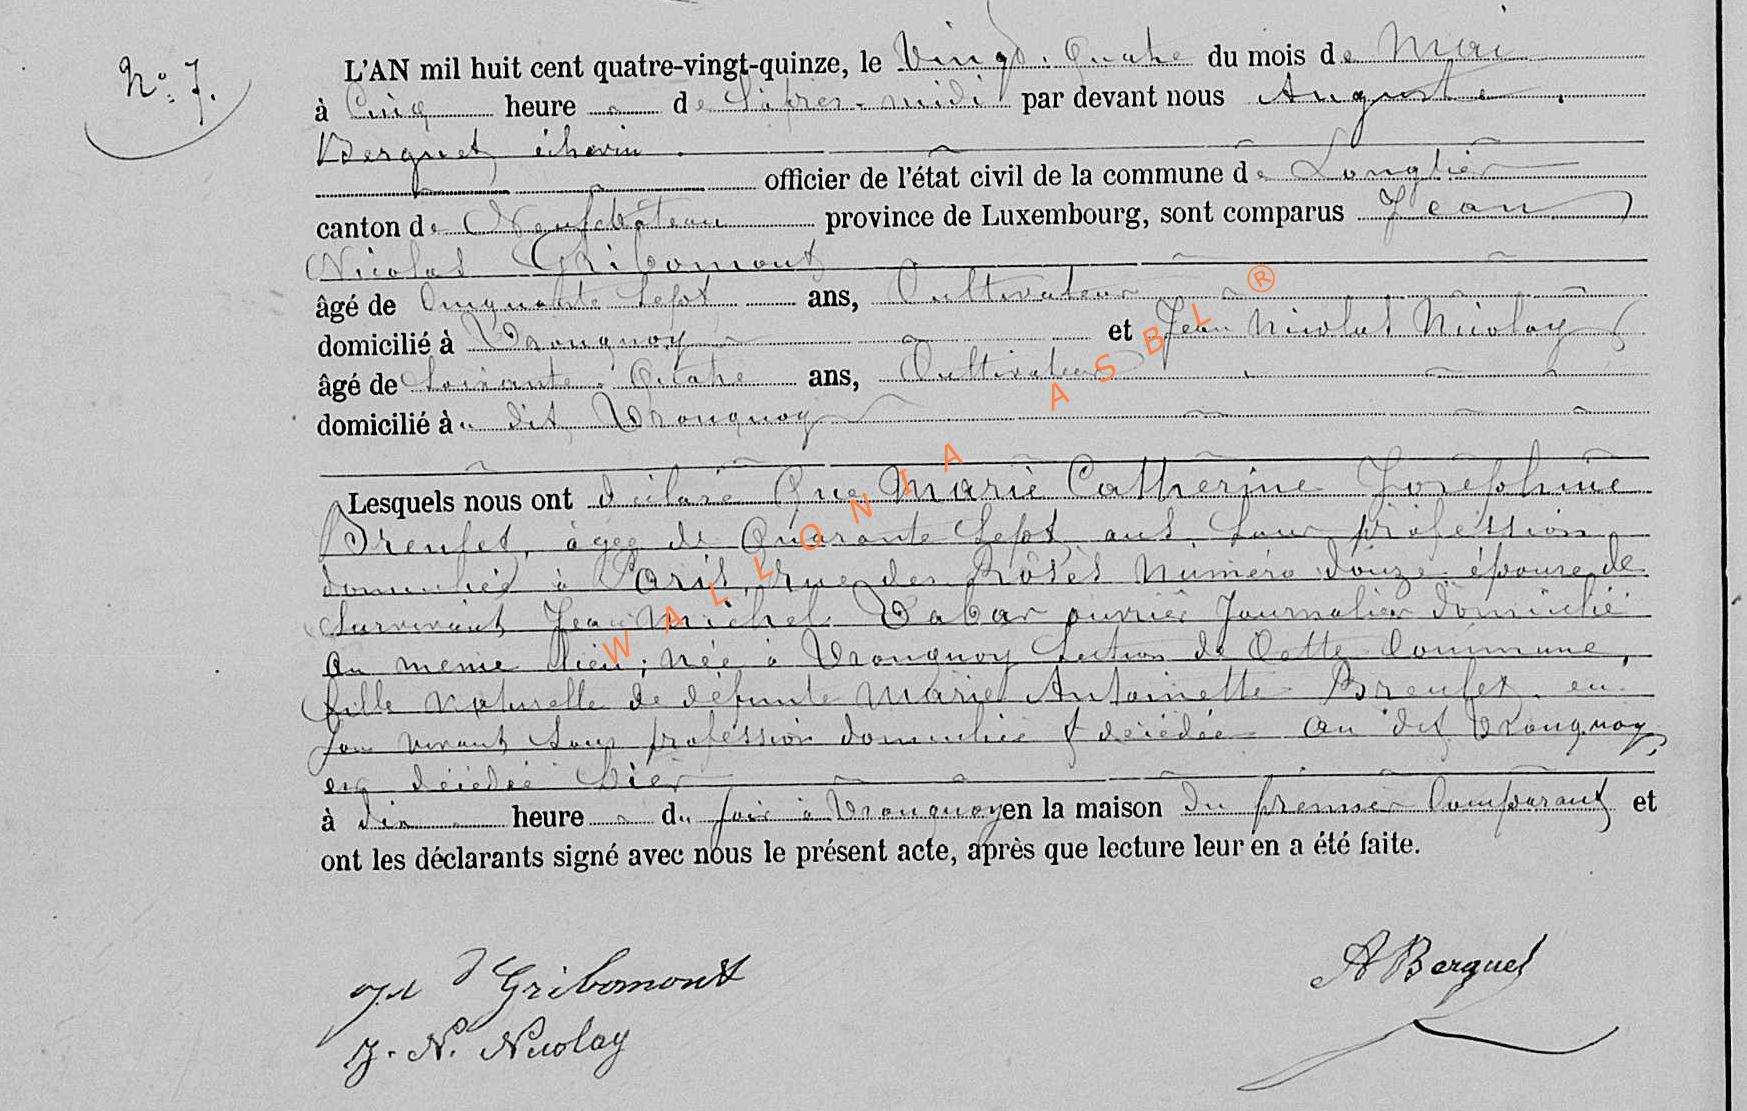 N°. 7.
L'AN mil huit cent quatre-vingt-quinze, le Vingt. Quatre du mois de Mai
à Cinq heure s de l'apres-midi par devant nous Auguste
Berquet échevin
officier de l'état civil de la commune de Longlier
canton de Neufchâteau province de Luxembourg, sont comparus Jean
Nicolas Gribomont
âgé de Cinquante Sept ans, Cultivateur
domicilié à Tronquoy et Jean Nicolas Nicolay
âgé de Soixante Quatre ans, Cultivateur
domicilié à dit Tronquoy
Lesquels nous ont déclaré Que Marie Catherine Joséphine
Breufet, âgée de Quarante Sept ans, Sans profession
domiciliée à Paris, rue des Rosés Numéro douze épouse de
Survivant Jean Michel Tabar ouvrier Journalier domicilié
au meme lieu ; Née à Tronquoy Section de Cette Commune,
fille Naturelle de défunte Marie Antoinette Breufet en
son vivant Sans profession domiciliée & décédée au dit Tronquoy,
est décédée hier
à dix heure s du soir à Tronquoy en la maison du premier Comparant et
ont les déclarants signé avec nous le présent acte, après que lecture leur en a été faite.
Gribomont
A Berquet
J. N. Nicolay
WALLONIA ASBL ®